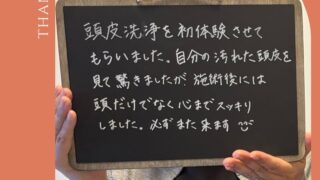 THAN
頭皮洗浄を初体験させて
もらいました。自分の汚れた頭皮を
見て驚きましたが、施術後には
頭だけでなく心までスッキリ
しました。必ずまた来ます